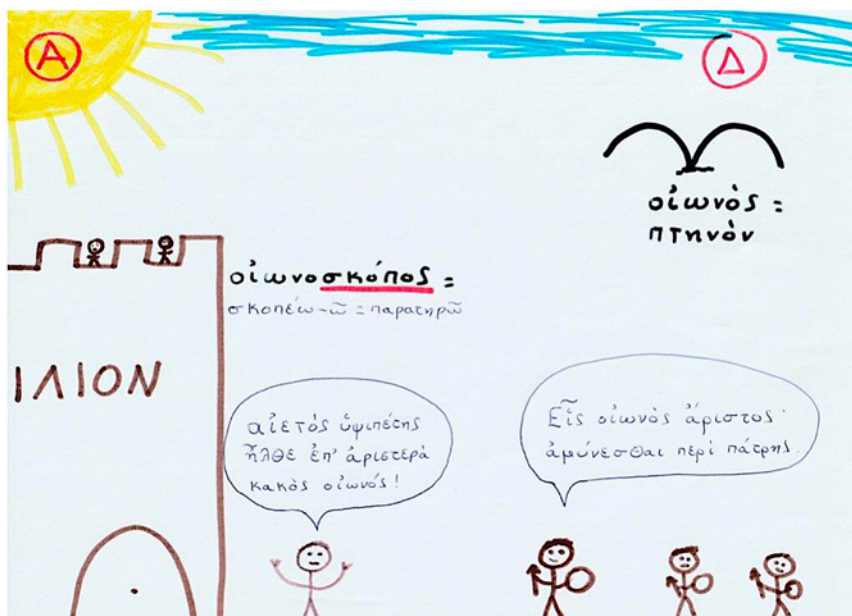 Α
Δ
οἰωνὸς =
πτηνὸν
οἰωνοσκόπος =
σκοπέω-ῶ = παρατηρῶ
ΙΛΙΟΝ
αἰετὸς ὑψιπέτης
ἦλθε ἐπ' ἀριστερὰ
κακὸς οἰωνός!
Εἷς οἰωνὸς ἄριστος·
ἀμύνεσθαι περὶ πάτρης.